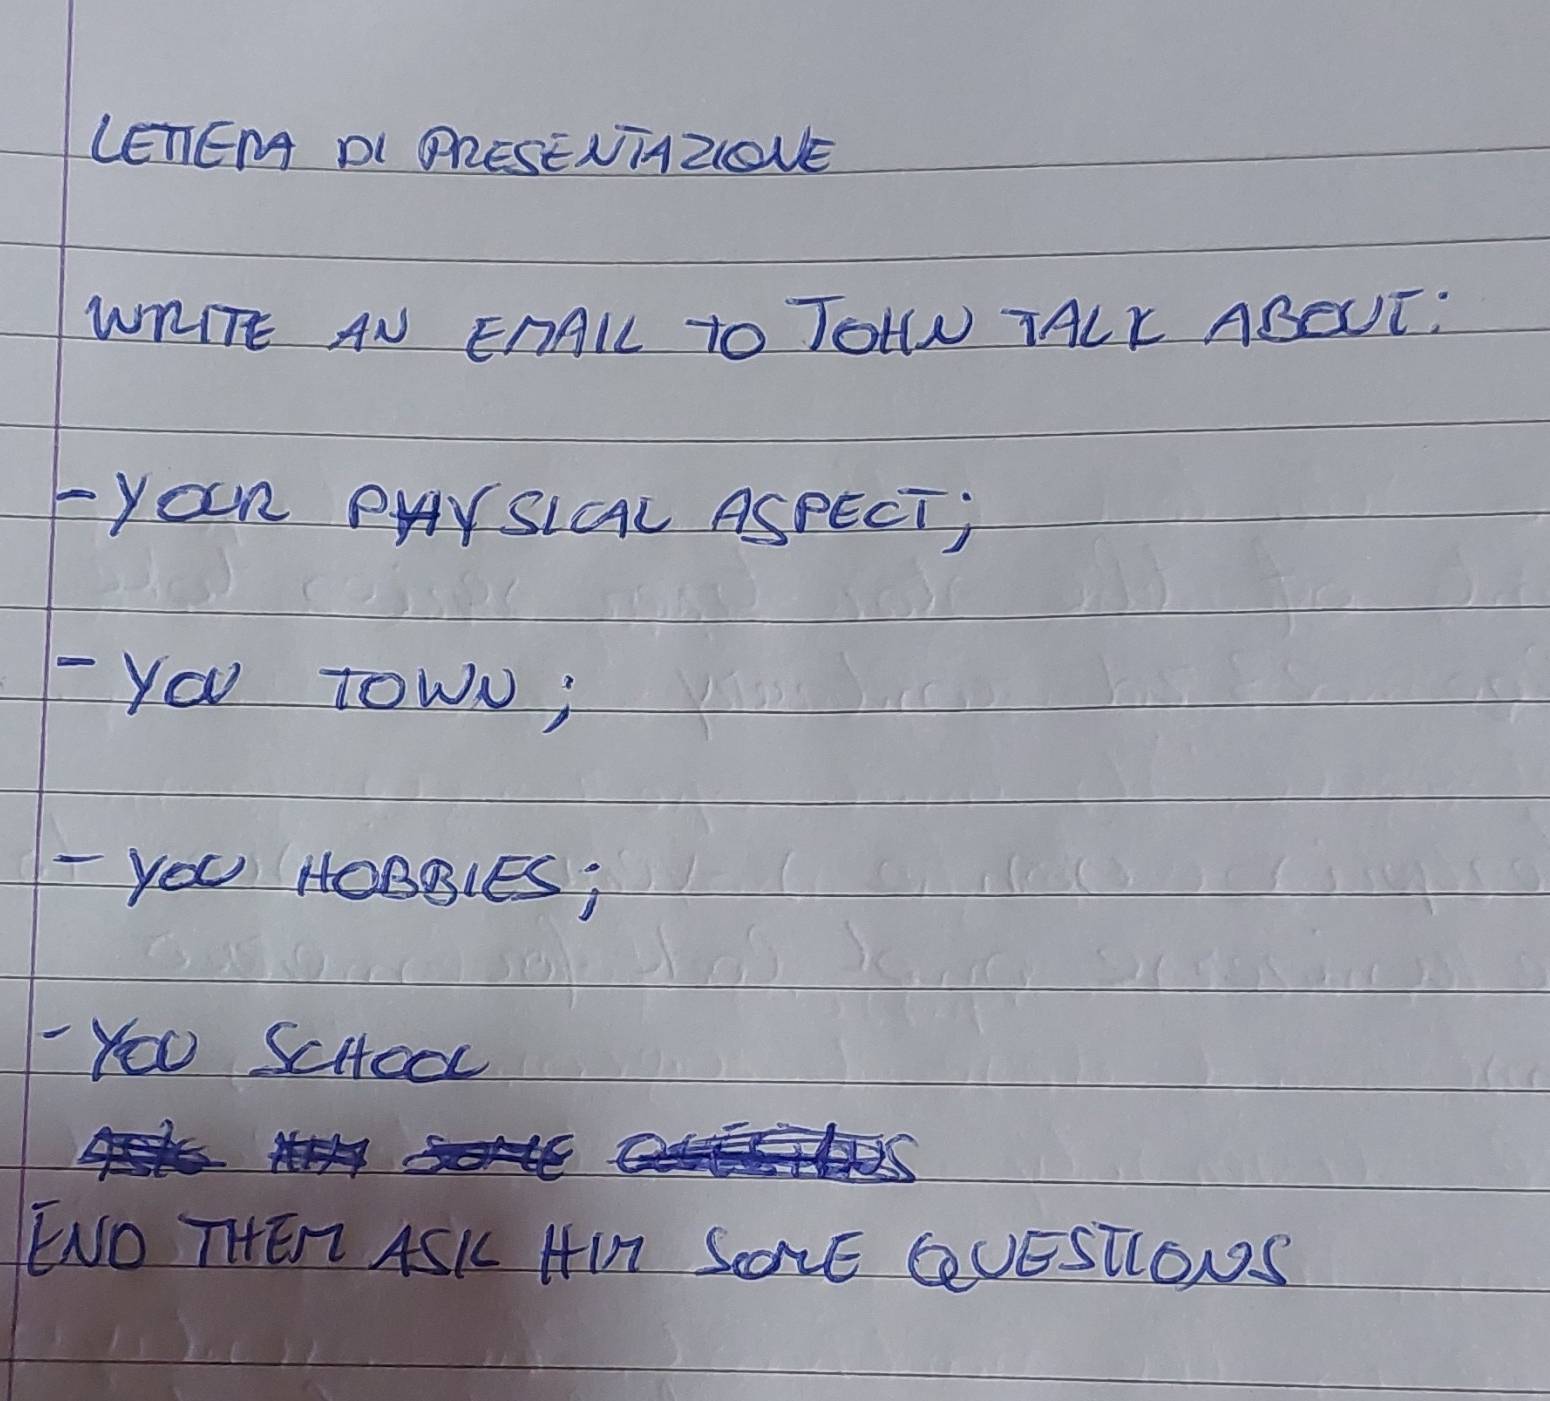 LETTERA DI PRESENTAZIONE
WRITE AN EMAIL TO JOHN TALK ABOUT:
- YOUR PHYSICAL ASPECT;
- YOU TOWN;
- YOU HOBBIES;
- YOU SCHOOL
END THEM ASK HIM SOME QUESTIONS